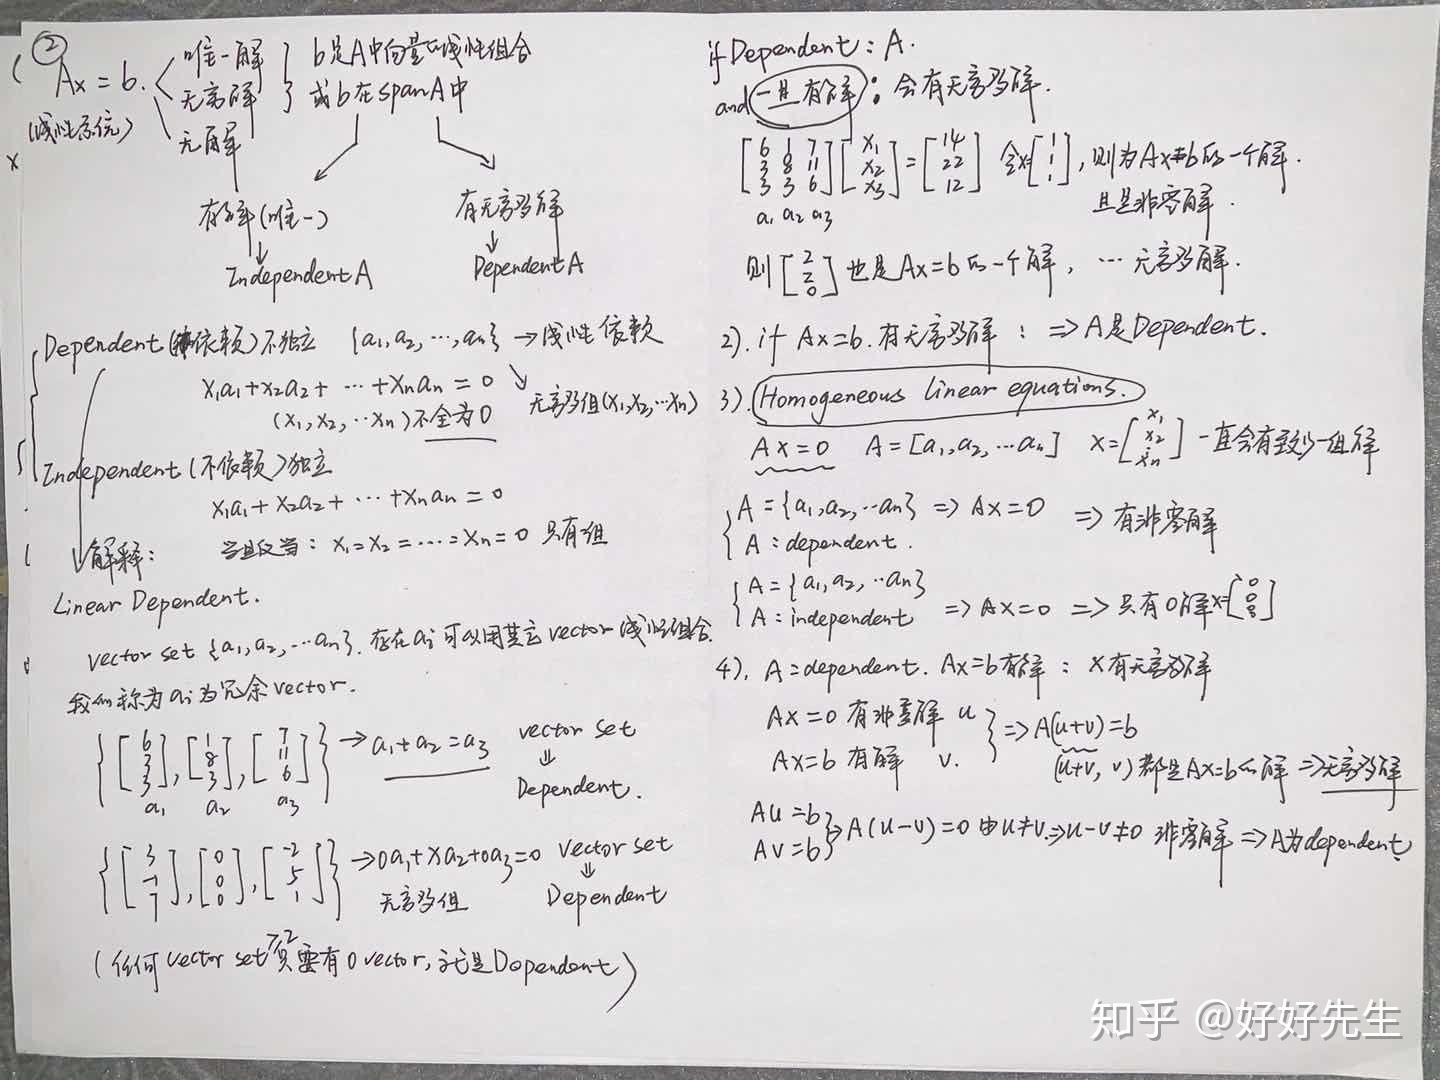 ②
Ax = b.
(线性系统)
唯一解
无穷解
无解
b是A中向量的线性组合
或b在spanA中
有解(唯一)
Independent A
有无穷多解
Dependent A
Dependent (依赖)不独立 {a₁,a₂,…,aₙ} → 线性依赖
x₁a₁+x₂a₂+ … +xₙaₙ = 0
(x₁,x₂,…xₙ)不全为0
无穷多组(x₁,x₂,…xₙ)
Independent (不依赖)独立
x₁a₁+x₂a₂+ … +xₙaₙ = 0
当且仅当: x₁=x₂=…=xₙ=0 只有一组
解释:
Linear Dependent.
vector set {a₁,a₂,…aₙ}. 存在aᵢ可以用其它vector线性组合.
我们称为aᵢ为冗余vector.
{ [6 3 3], [1 8 3], [7 11 6] } → a₁+a₂=a₃ vector set
a₁ a₂ a₃
⇓
Dependent.
{ [3 -1 7], [0 0 0], [-2 5 1] } → 0a₁+xa₂+0a₃=0 vector set
无穷多组
⇓
Dependent
(任何vector set只要有0 vector,就是Dependent)
if Dependent : A.
and 一旦有解 : 会有无穷多解.
[6 1 7; 3 8 11; 3 3 6] [x₁ x₂ x₃] = [14 22 12] 令x=[1 1 1], 则为Ax=b的一个解.
a₁ a₂ a₃
且是非零解.
则[2 2 0]也是Ax=b的一个解, … 无穷多解.
2). if Ax=b.有无穷多解 : ⇒ A是Dependent.
3). Homogeneous linear equations.
Ax=0 A=[a₁,a₂,…aₙ] x=[x₁ x₂ ⋮ xₙ] 一直会有至少一组解
A={a₁,a₂,…aₙ} ⇒ Ax=0 ⇒ 有非零解
A:dependent.
A={a₁,a₂,…aₙ}
A:independent ⇒ Ax=0 ⇒ 只有0解x=[0 0 0]
4). A=dependent. Ax=b有解 : x有无穷多解
Ax=0 有非零解 u
Ax=b 有解 v.
⇒ A(u+v)=b
(u+v, v)都是Ax=b的解 ⇒ 无穷多解
Au=b
Av=b
⇒ A(u-v)=0 由u≠v.⇒ u-v≠0 非零解 ⇒ A为dependent.
知乎 @好好先生